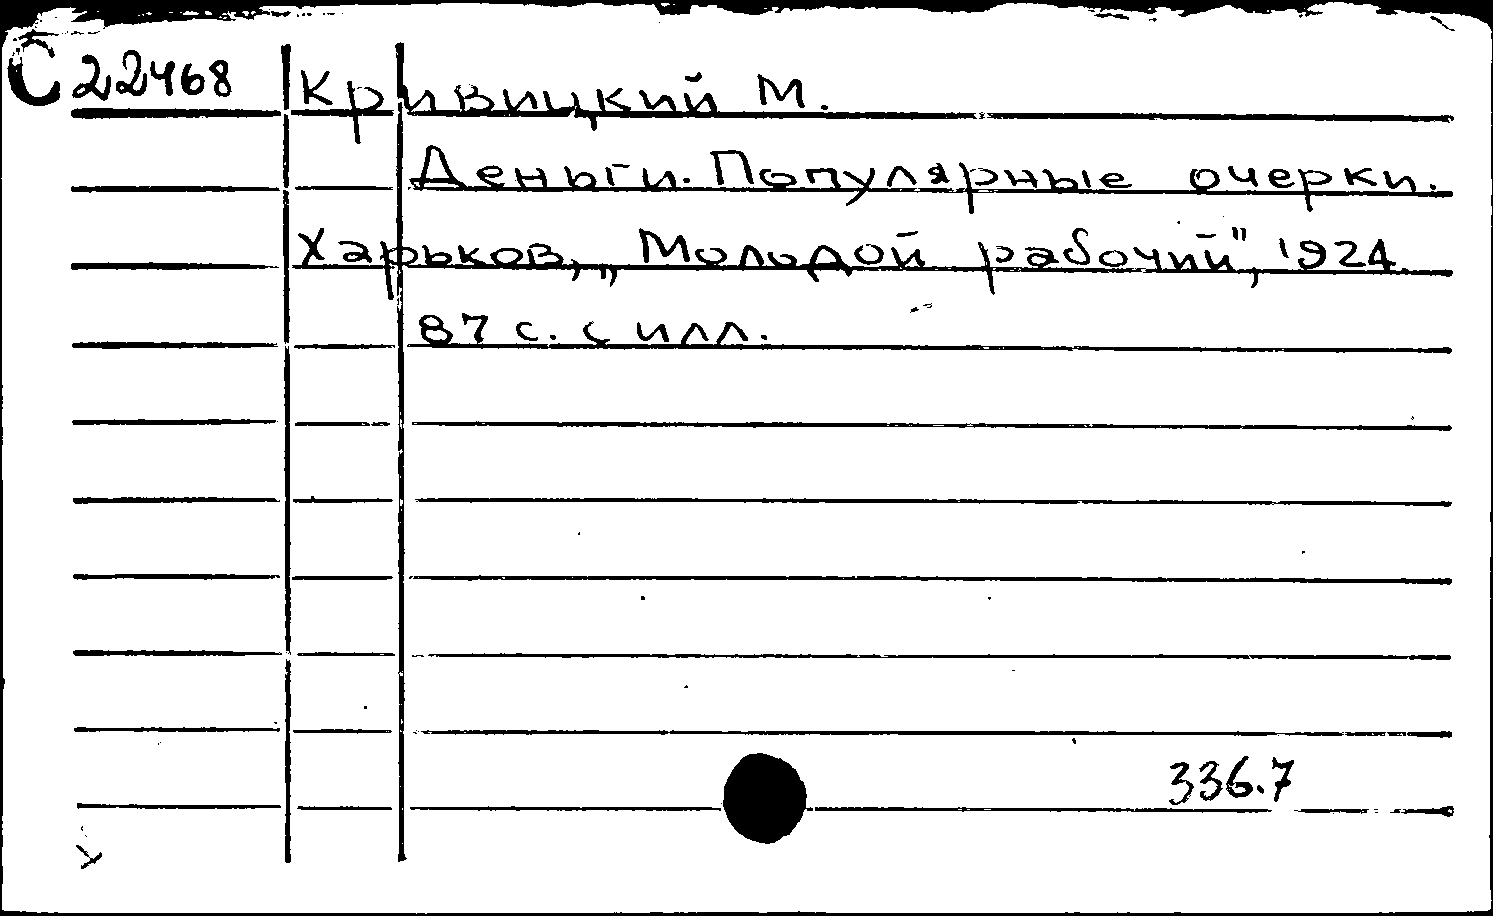 С 22468 Кривицкий М.
Деньги. Популярные очерки.
Харьков, „Молодой рабочий", 1924.
87 с. с илл.
336.7